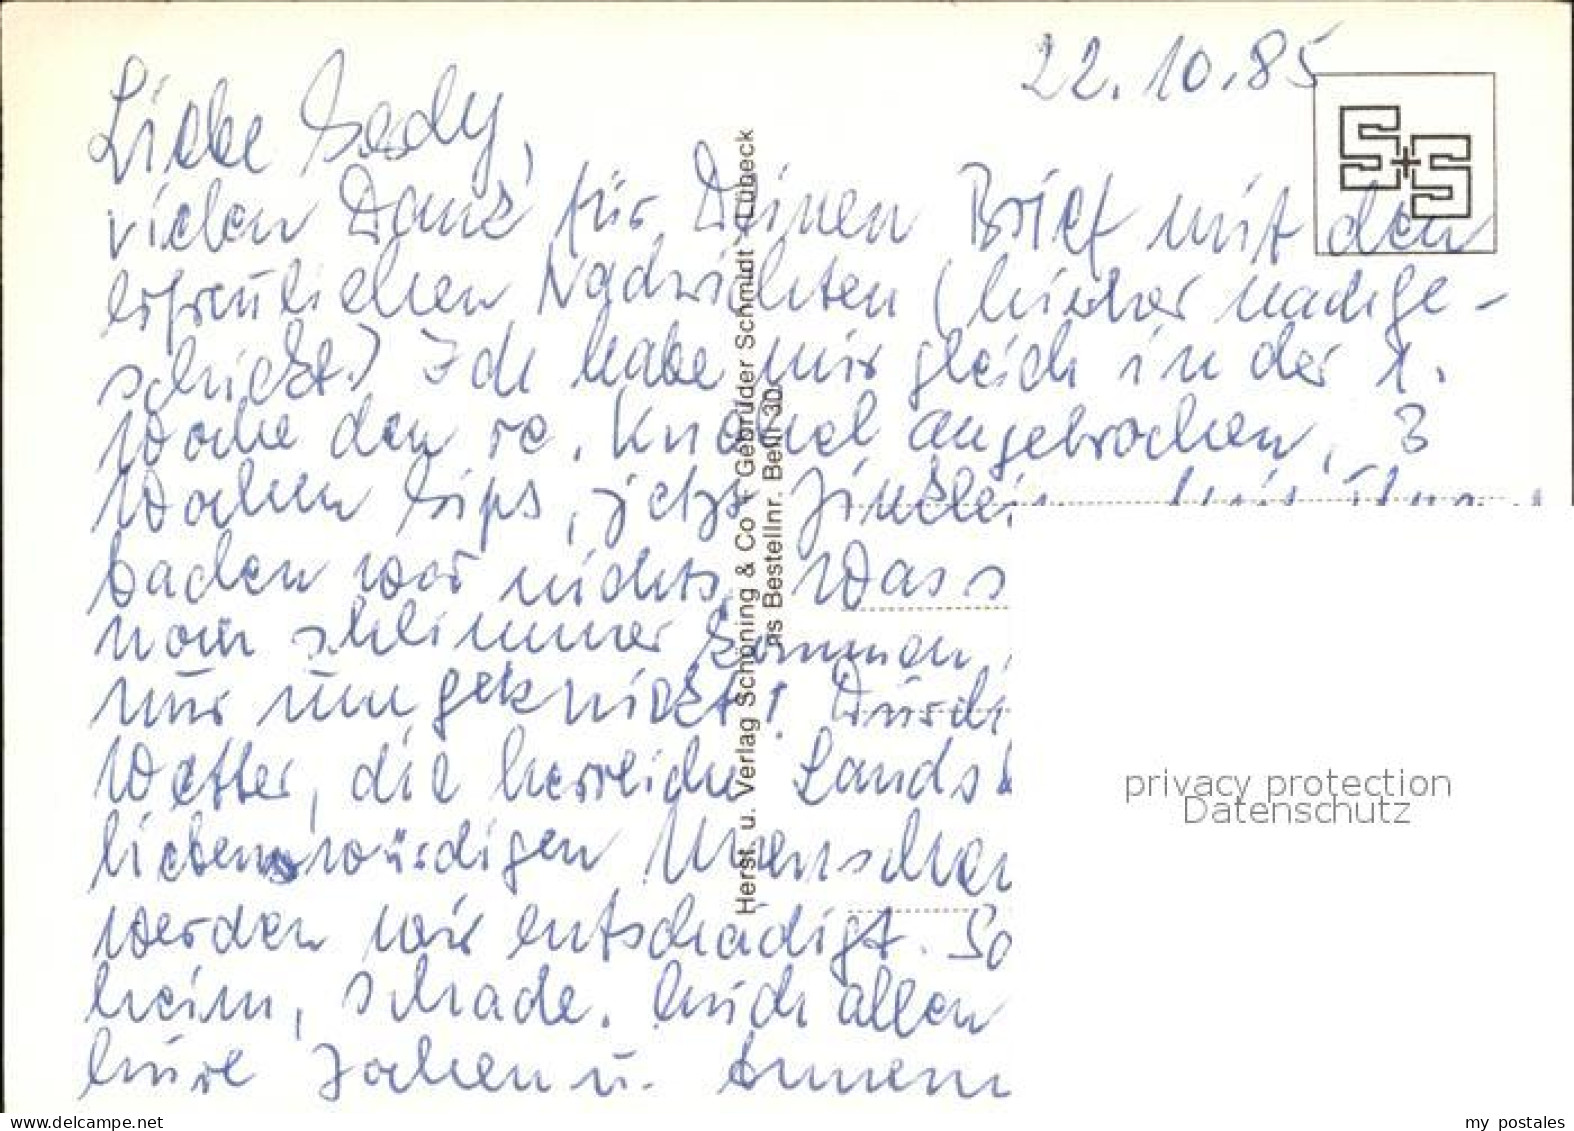 22.10.85
Liebe Gady,
vielen Dank für Deinen Brief mit den
erfreulichen Nachrichten (hierher nachge-
schickt.) Ich habe mir gleich in der 1.
Woche den re. Knöchel angebrochen, 3
Wochen Gips, jetzt Zinkleim. Mit
baden war nichts. Wass
vom schlimmer kommen,
nur umgeknickt! Durch
Wetter, die herrliche Lands
liebenswürdigen Menschen
werden wir entschädigt. So
heim, schade. Euch allen
Eure Jochen u. Annem
S+S
Herst. u. Verlag Schöning & Co + Gebrüder Schmidt · Lübeck
ns Bestellnr. Berli 30
privacy protection
Datenschutz
my postales